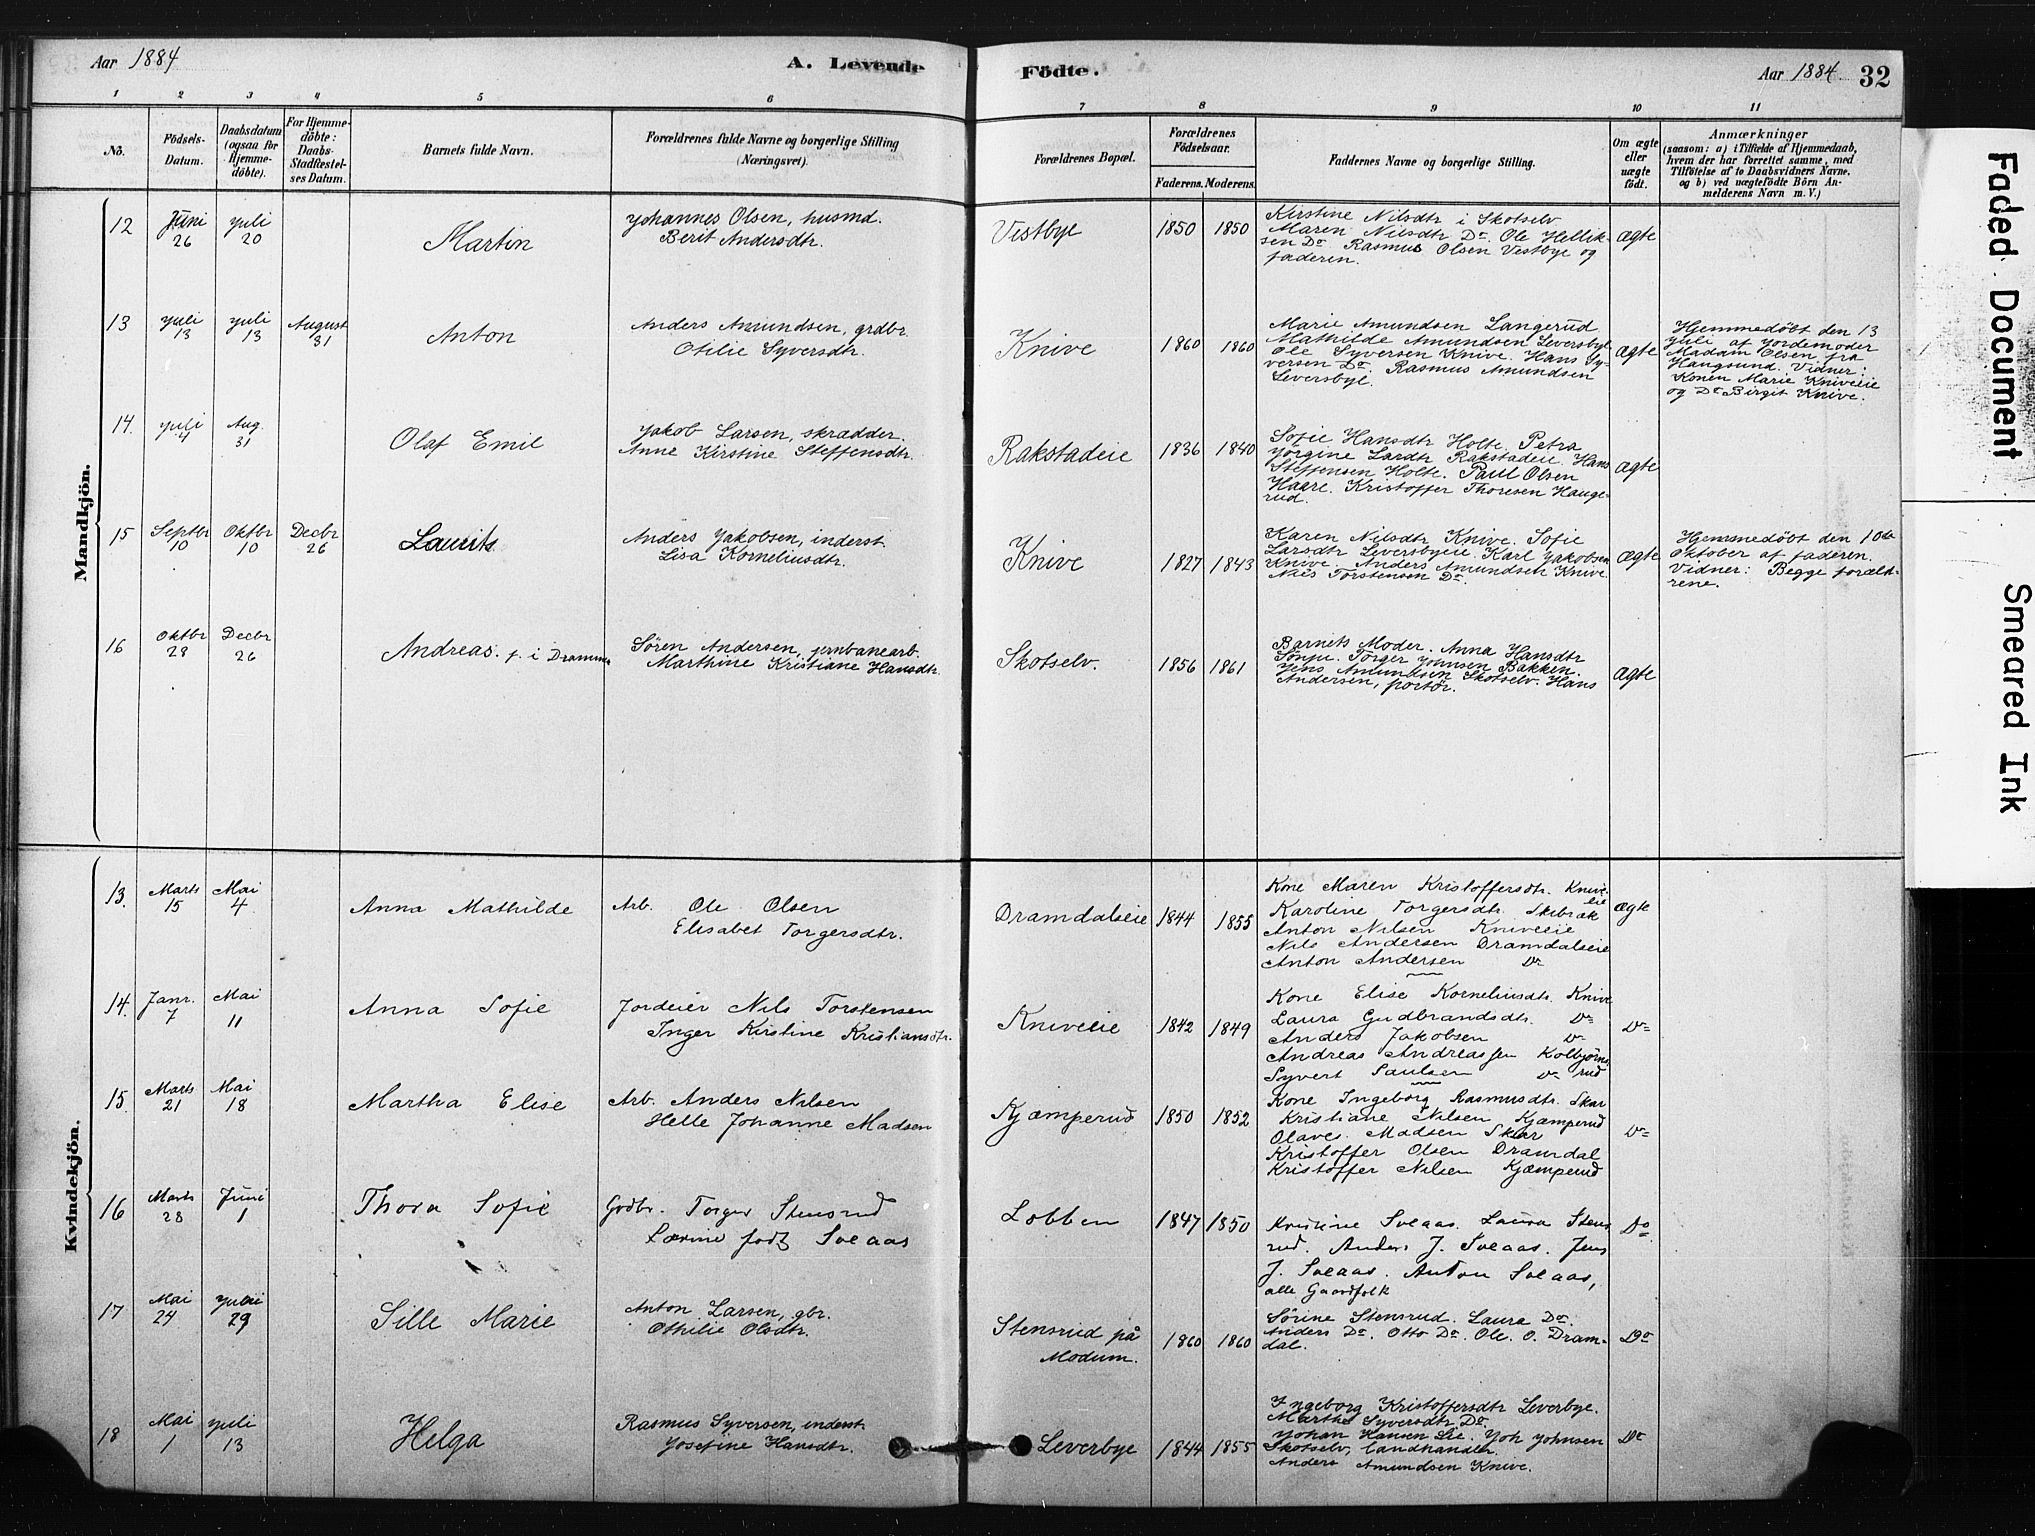 Aar 1884
A. Levende
Födte.
Aar 1884
32
1 2 3 4 5 6 7 8 9 10 11
No.
Födsels-
Datum.
Daabsdatum
(ogsaa for
Hjemme-
döbte).
For Hjemme-
döbte:
Daabs-
Stadfæstel-
ses Datum.
Barnets fulde Navn.
Forældrenes fulde Navne og borgerlige Stilling
(Næringsvei).
Forældrenes Bopæl.
Forældrenes
Födselsaar.
Faderens. Moderens.
Faddernes Navne og borgerlige Stilling.
Om ægte
eller
uægte
födt.
Anmærkninger
(saasom: a) i Tilfælde af Hjemmedaab,
hvem der har forrettet samme, med
Tilföielse af to Daabsvidners Navne,
og b) ved uægtefödte Börn An-
melderens Navn m. V.)
Mandkjön.
12
Juni
26
Juli
20
Martin
Johannes Olsen, husmd.
Berit Andersdtr.
Vestbye
1850 1850
Kirstine Nilsdtr i Skotselv
Maren Nilsdtr Do. Ole Hellik-
sen Do. Rasmus Olsen Vestbye og
faderen.
ægte
13
Juli
13
Juli
13
August
31
Anton
Anders Amundsen, grdbr.
Otilie Syversdtr.
Knive
1860 1860
Marie Amundsen Langerud
Mathilde Amundsen Leversbye
Ole Syversen Knive. Hans Sy-
versen Do. Rasmus Amundsen
Leversbye.
ægte
Hjemmedöbt den 13
Juli af Jordemoder
Madam Olsen fra
Haugsund. Vidner:
Konen Marie Kniveeie
og Do Birgit Knive.
14.
Juli
4
Aug.
31
Olaf Emil
Jakob Larsen, skrædder.
Anne Kirstine Steffensdtr.
Rakstadeie
1836 1840
Sofie Hansdtr Holte, Petra
Jørgine Larsdtr Rakstadeie. Hans
Steffensen Holte. Paul Olsen
Haare. Kristoffer Thoresen Hauge-
rud.
ægte
15
Septbr
10
Oktbr
10
Decbr
26
Laurits
Anders Jakobsen, inderst
Lisa Korneliusdtr.
Knive
1827 1843
Karen Nilsdtr Knive. Sofie
Larsdtr Leversbyeie. Karl Jakobsen
Knive. Anders Amundsen Knive.
Nils Torstensen Do.
ægte
Hjemmedöbt den 10de
Oktober af faderen.
Vidner: Begge foræld-
rene.
16
Oktbr
28
Decbr
26
Andreas. f. i Dramme
Søren Andersen, jernbanearb.
Marthine Kristiane Hansdtr.
Skotselv.
1856 1861
Barnets Moder. Anna Hansdtr
Torger Johnsen Bakken.
Jens Amundsen Skotselv. Hans
Andersen, portør.
ægte
Kvindekjön.
13.
Marts
15
Mai
4
Anna Mathilde
Arb. Ole Olsen
Elisabet Torgersdtr.
Dramdalseie
1844 1855
Kone Maren Kristoffersdtr. Knive-
eie
Karoline Torgersdtr. Skibræk
Anton Nilsen Kniveeie
Nils Andersen Dramdalseie
Anton Andersen Do
ægte
14.
Janr.
7
Mai
11
Anna Sofie
Jordeier Nils Torstensen
Inger Kristine Kristiansdtr.
Kniveeie
1842 1849
Kone Elise Korneliusdtr. Knive
Laura Gudbrandsdtr. Do
Anders Jakobsen Do
Andreas Andreassen Kolbjørns-
rud
Syvert Paulsen Do
Do
15.
Marts
21
Mai
18
Martha Elise
Arb. Anders Nilsen
Helle Johanne Madsen
Kjæmperud
1850 1852
Kone Ingeborg Rasmusdtr. Skar
Kristiane Nilsen Kjæmperud
Olaves Madsen Skar
Kristoffer Olsen Dramdal
Kristoffer Nilsen Kjæmperud
Do
16
Marts
28
Juni
1
Thora Sofie
Grdbr. Torger Stensrud
Lovine født Solaas
Lobben
1847 1850
Kristine Solaas. Laura Stens
rud. Anders J. Solaas. Jens
J. Solaas. Anton Solaas,
alle Gaardfolk
Do
17
Mai
24
Juni
29
Sille Marie
Anton Larsen, gbr.
Othilie Olsdtr.
Stensrud på
Modum.
1860 1860
Sørine Stensrud. Laura Do.
Anders Do. Otto Do. Ole. O. Dram-
dal.
Do
18
Mai
1
Juli
13
Helga
Rasmus Syversen, inderst
Josefine Hansdtr.
Leverbye
1844 1855
Ingeborg Kristoffersdtr Leverbye.
Marthe Syversdtr Do.
Johan Hansen Lie. Joh Johnsen
Skotselv, landhandler.
Anders Amundsen Knive.
Do
Faded Document
Smeared Ink